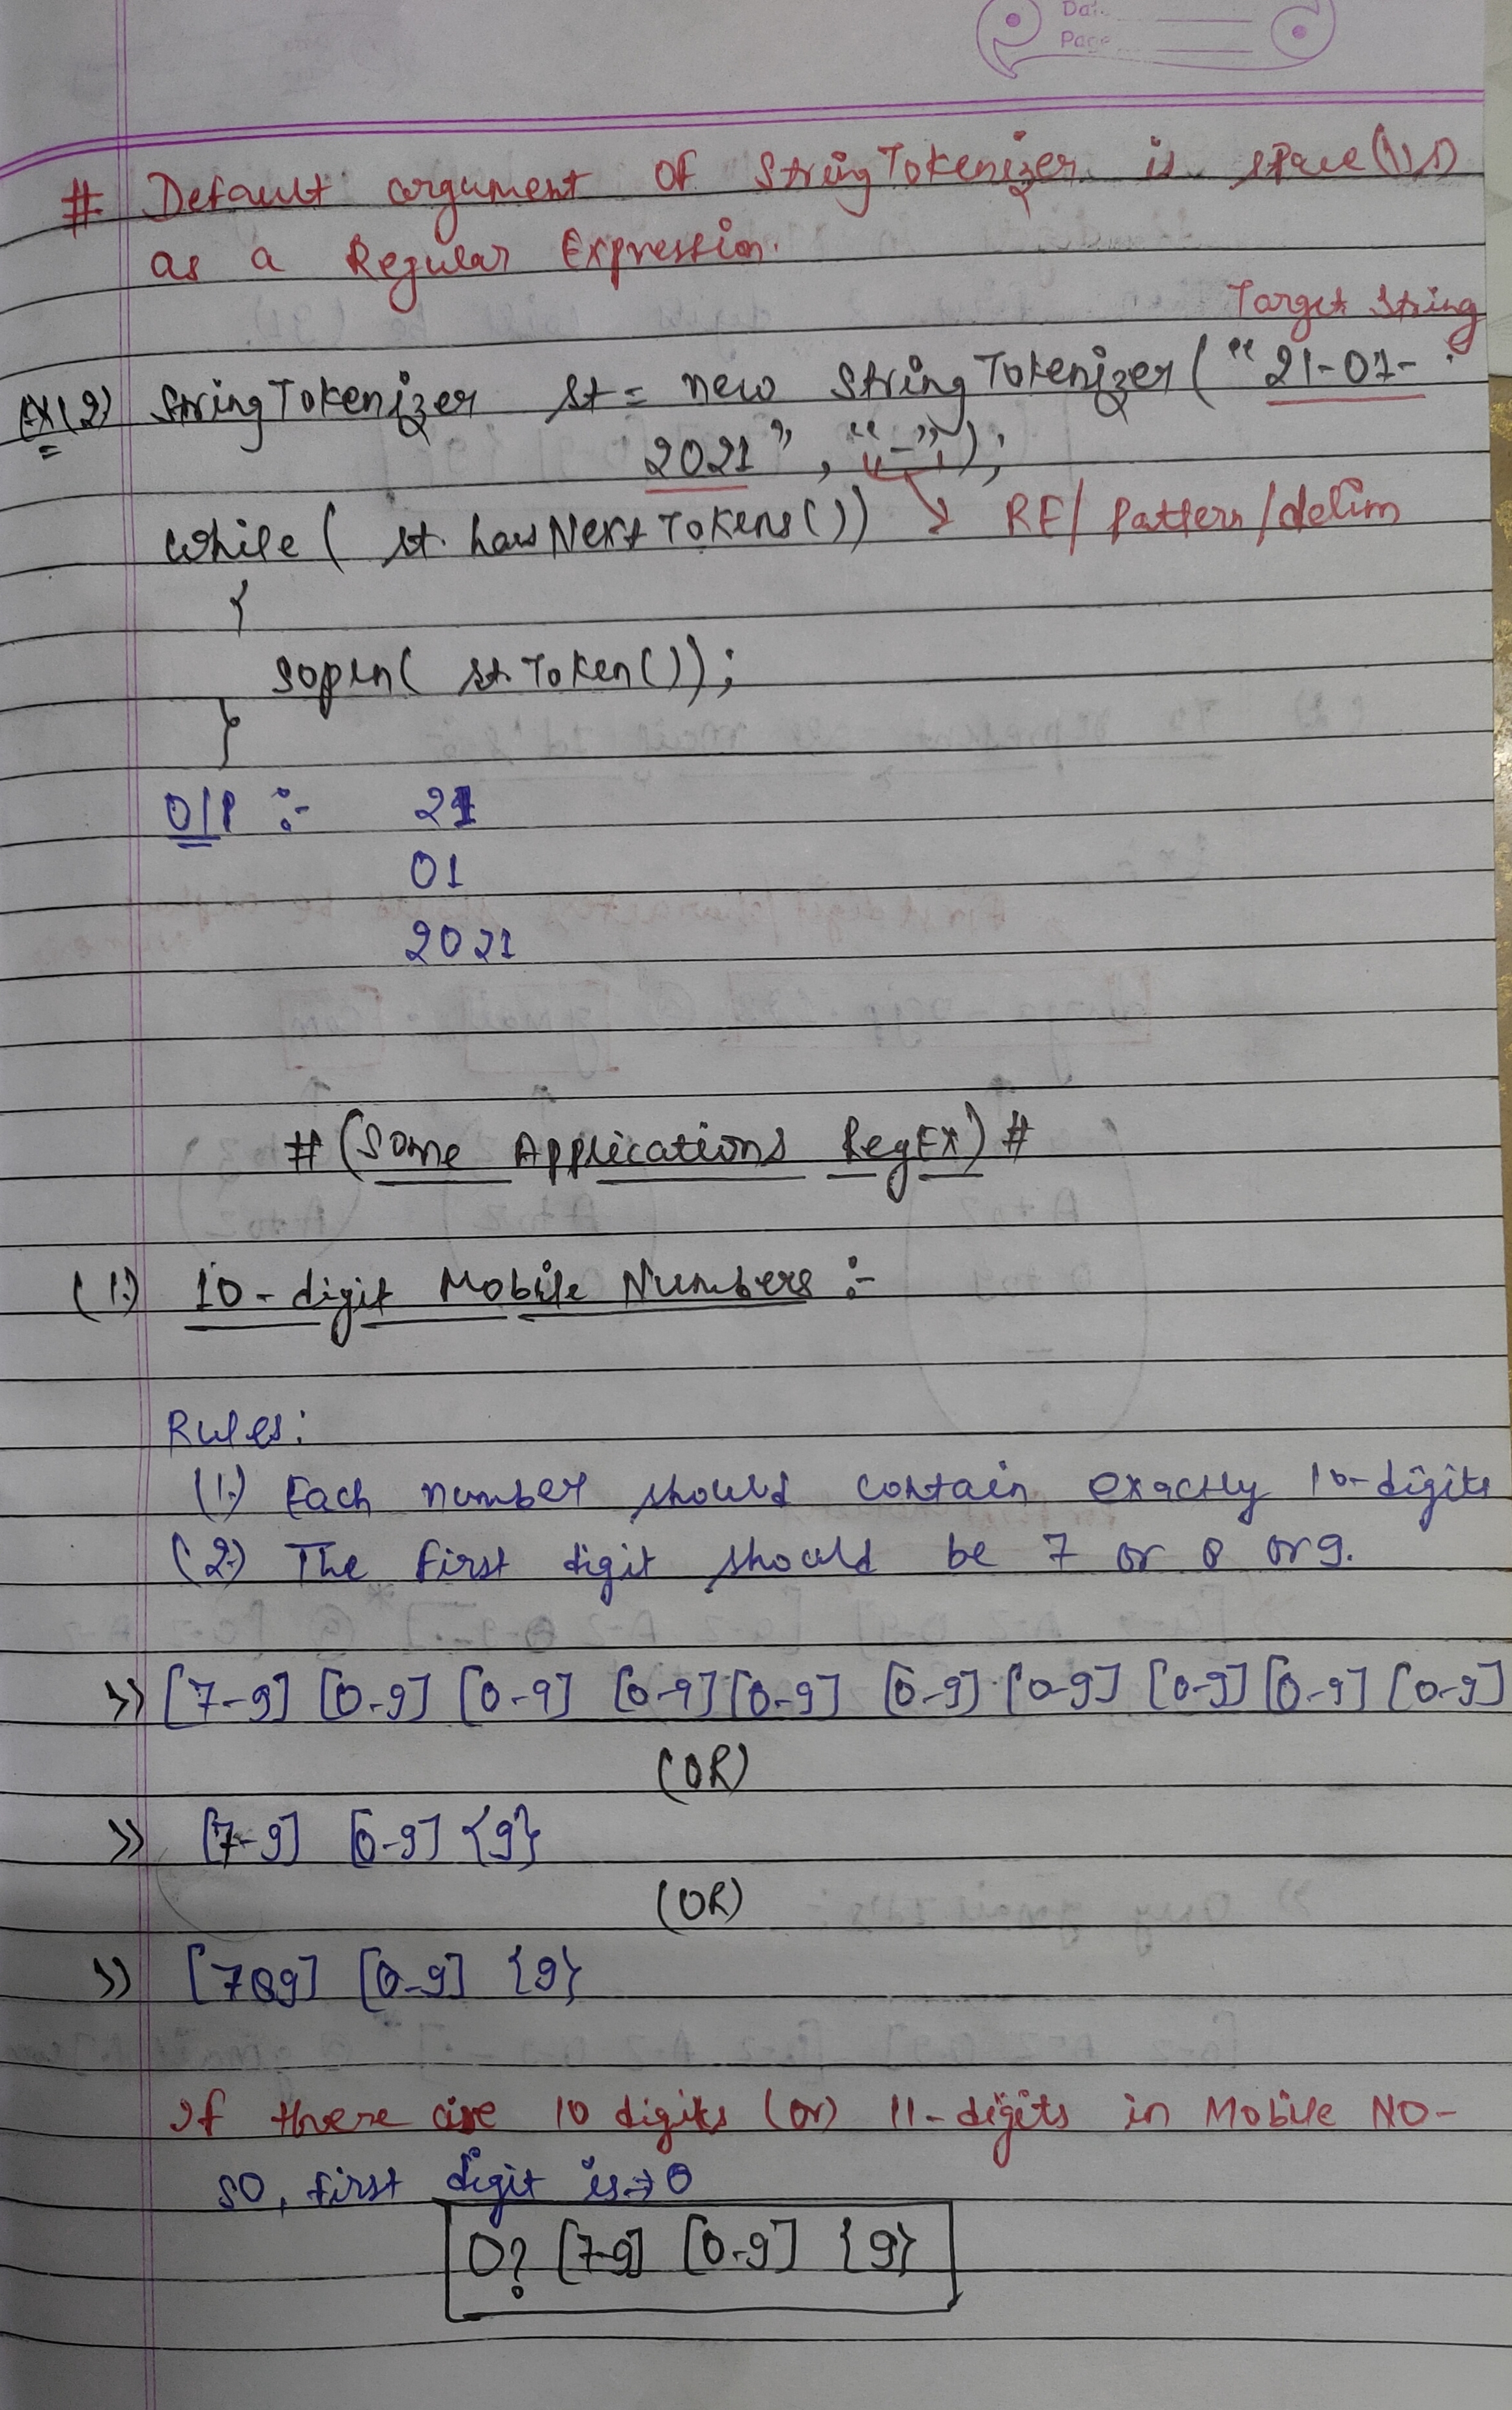 Dat.
Page
# Default argument of StringTokenizer is space (\\s)
as a Regular Expression.
Target String
EX(2) StringTokenizer st = new StringTokenizer("21-01-
2021", "-");
while( st.hasNextTokens())
RE/ Pattern/delim
{
Sopln( st.Token());
}
O/P :- 21
01
2021
#(Some Applications RegEX)#
(1.) 10-digit Mobile Numbers :-
Rules:
(1.) Each number should contain exactly 10-digits
(2.) The first digit should be 7 or 8 or 9.
>> [7-9] [0-9] [0-9] [0-9] [0-9] [0-9] [0-9] [0-9] [0-9] [0-9]
(OR)
>> [7-9] [0-9] {9}
(OR)
>> [789] [0-9] {9}
If there are 10 digits (or) 11-digits in Mobile NO-
SO, first digit is → 0
0? [7-9] [0-9] {9}